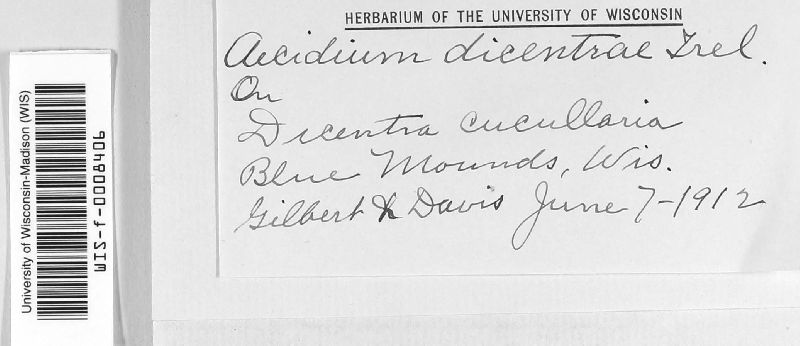 HERBARIUM OF THE UNIVERSITY OF WISCONSIN
Aecidium dicentrae Trel.
On
Dicentra cucullaria
Blue Mounds, Wis.
Gilbert & Davis June 7-1912
University of Wisconsin-Madison (WIS)
WIS-f-0008406